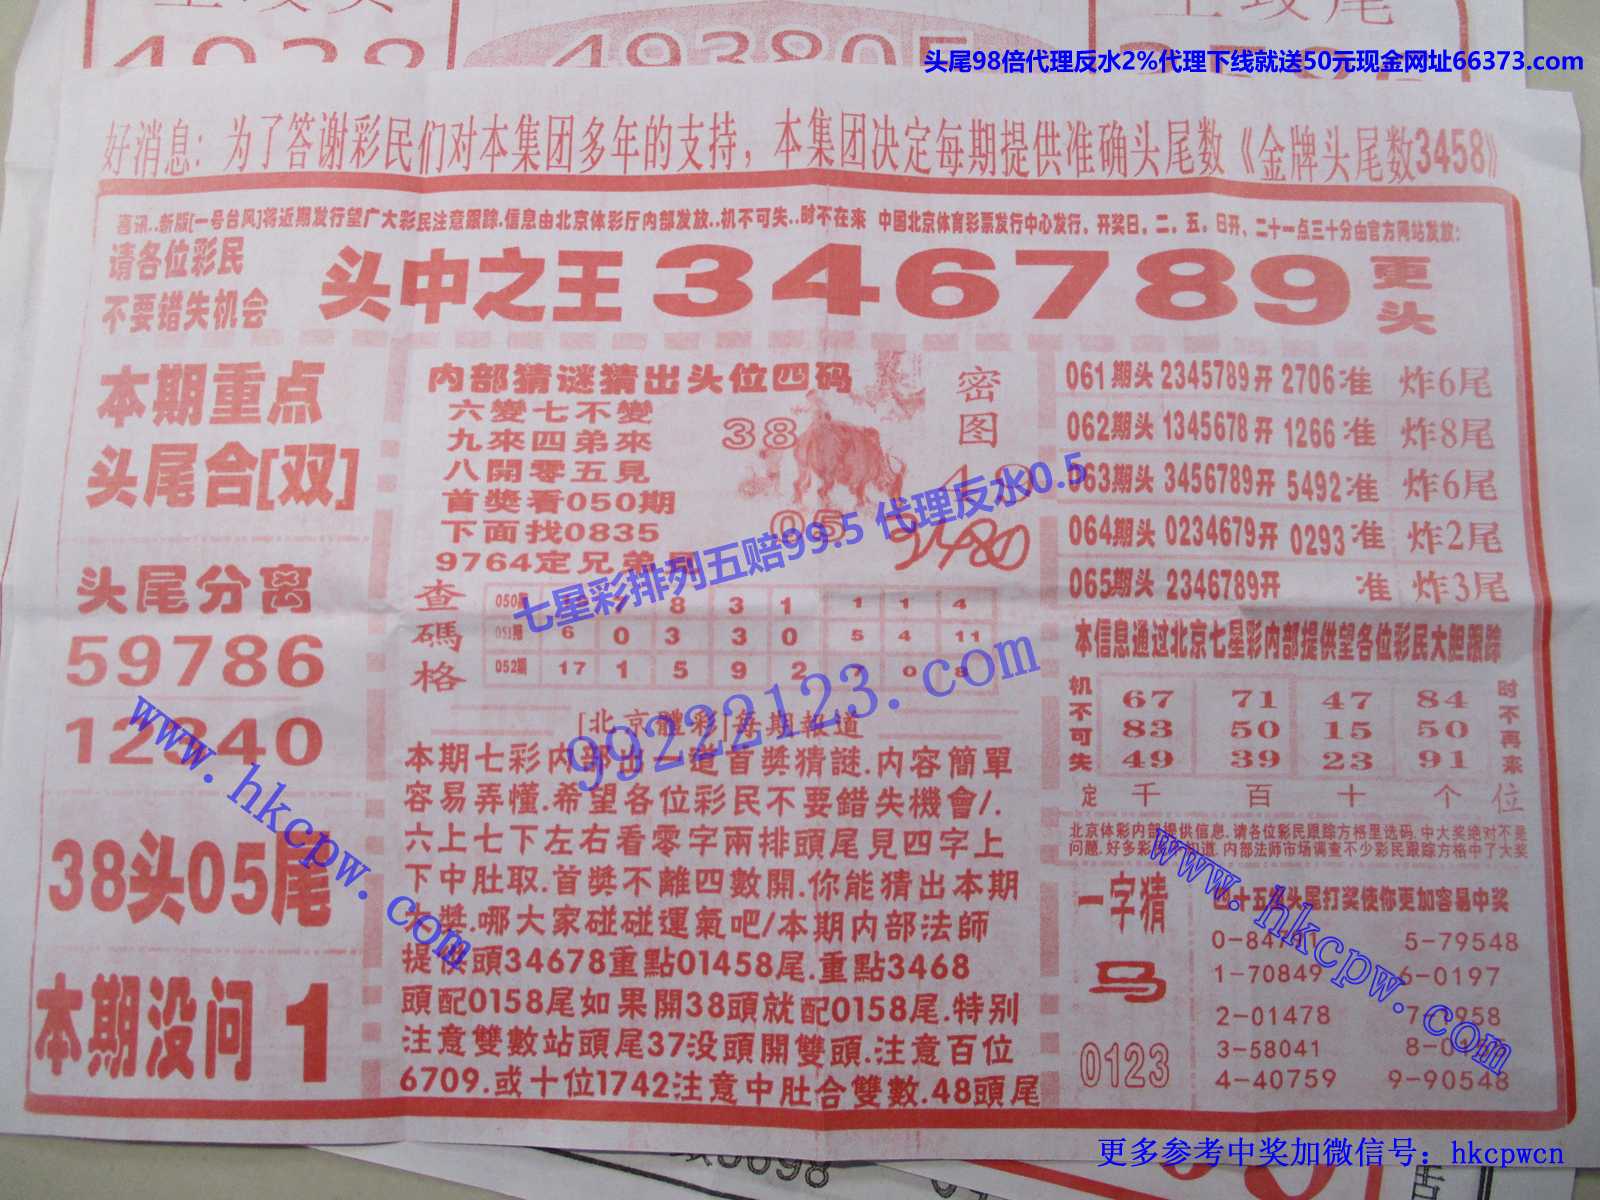 493805
头尾98倍代理反水2%代理下线就送50元现金网址66373.com
好消息：为了答谢彩民们对本集团多年的支持，本集团决定每期提供准确头尾数《金牌头尾数3458》
喜讯..新版[一号台风]将近期发行望广大彩民注意跟踪.信息由北京体彩厅内部发放..机不可失..时不在来 中国北京体育彩票发行中心发行，开奖日，二，五，日开、二十一点三十分由官方网站发放：
请各位彩民
不要错失机会
头中之王346789
更头
本期重点
头尾合[双]
头尾分离
59786
12340
38头05尾
本期没问1
内部猜谜猜出头位四码
六變七不變
九來四弟來
八開零五見
首獎看050期
下面找0835
9764定兄弟
密图
38
05
查碼格
050期 7 8 3 1 1 1 4
051期 6 0 3 3 0 5 4 11
052期 17 1 5 9 2 7 0 8
[北京體彩]每期報道
本期七彩内部出一道首獎猜謎.内容簡單
容易弄懂.希望各位彩民不要錯失機會/.
六上七下左右看零字兩排頭尾見四字上
下中肚取.首獎不離四數開.你能猜出本期
大獎.哪大家碰碰運氣吧/本期内部法師
提供頭34678重點01458尾.重點3468
頭配0158尾如果開38頭就配0158尾.特别
注意雙數站頭尾37没頭開雙頭.注意百位
6709.或十位1742注意中肚合雙數.48頭尾
061期头 2345789开 2706准 炸6尾
062期头 1345678开 1266准 炸8尾
063期头 3456789开 5492准 炸6尾
064期头 0234679开 0293准 炸2尾
065期头 2346789开 准 炸3尾
本信息通过北京七星彩内部提供望各位彩民大胆跟踪
机不可失
67 71 47 84
83 50 15 50
49 39 23 91
时不再来
定 千 百 十 个 位
北京体彩内部提供信息.请各位彩民跟踪方格里选码.中大奖绝对不是
问题.好多彩民 知道.内部法师市场调查不少彩民跟踪方格中了大奖
一字猜
马
0123
四十五组头尾打奖使你更加容易中奖
5-79548
1-70849 6-0197
2-01478
3-58041
4-40759 9-90548
七星彩排列五赔99.5 代理反水0.5
99222123.com
www.hkcpw.com
www.hkcpw.com
更多参考中奖加微信号：hkcpwcn